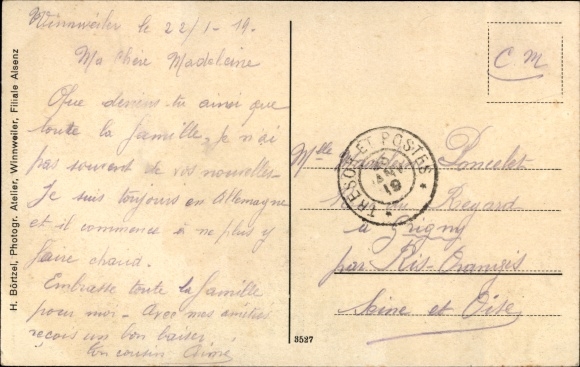 Winnweiler le 22/1-19.
Ma chère Madeleine
Que deviens-tu ainsi que
toute la famille, je n'ai
pas souvent de vos nouvelles.
Je suis toujours en Allemagne
et il commence à ne plus y
faire chaud.
Embrasse toute la famille
pour moi - Avec mes amitiés
reçois un bon baiser.
ton cousin Aimé
H. Börtzel, Photogr. Atelier, Winnweiler, Filiale Alsenz
C. M
TRESOR ET POSTES
JANV
19
Mlle Poncelet
Regard
à Grigny
par Ris-Orangis
Seine et Oise
3527